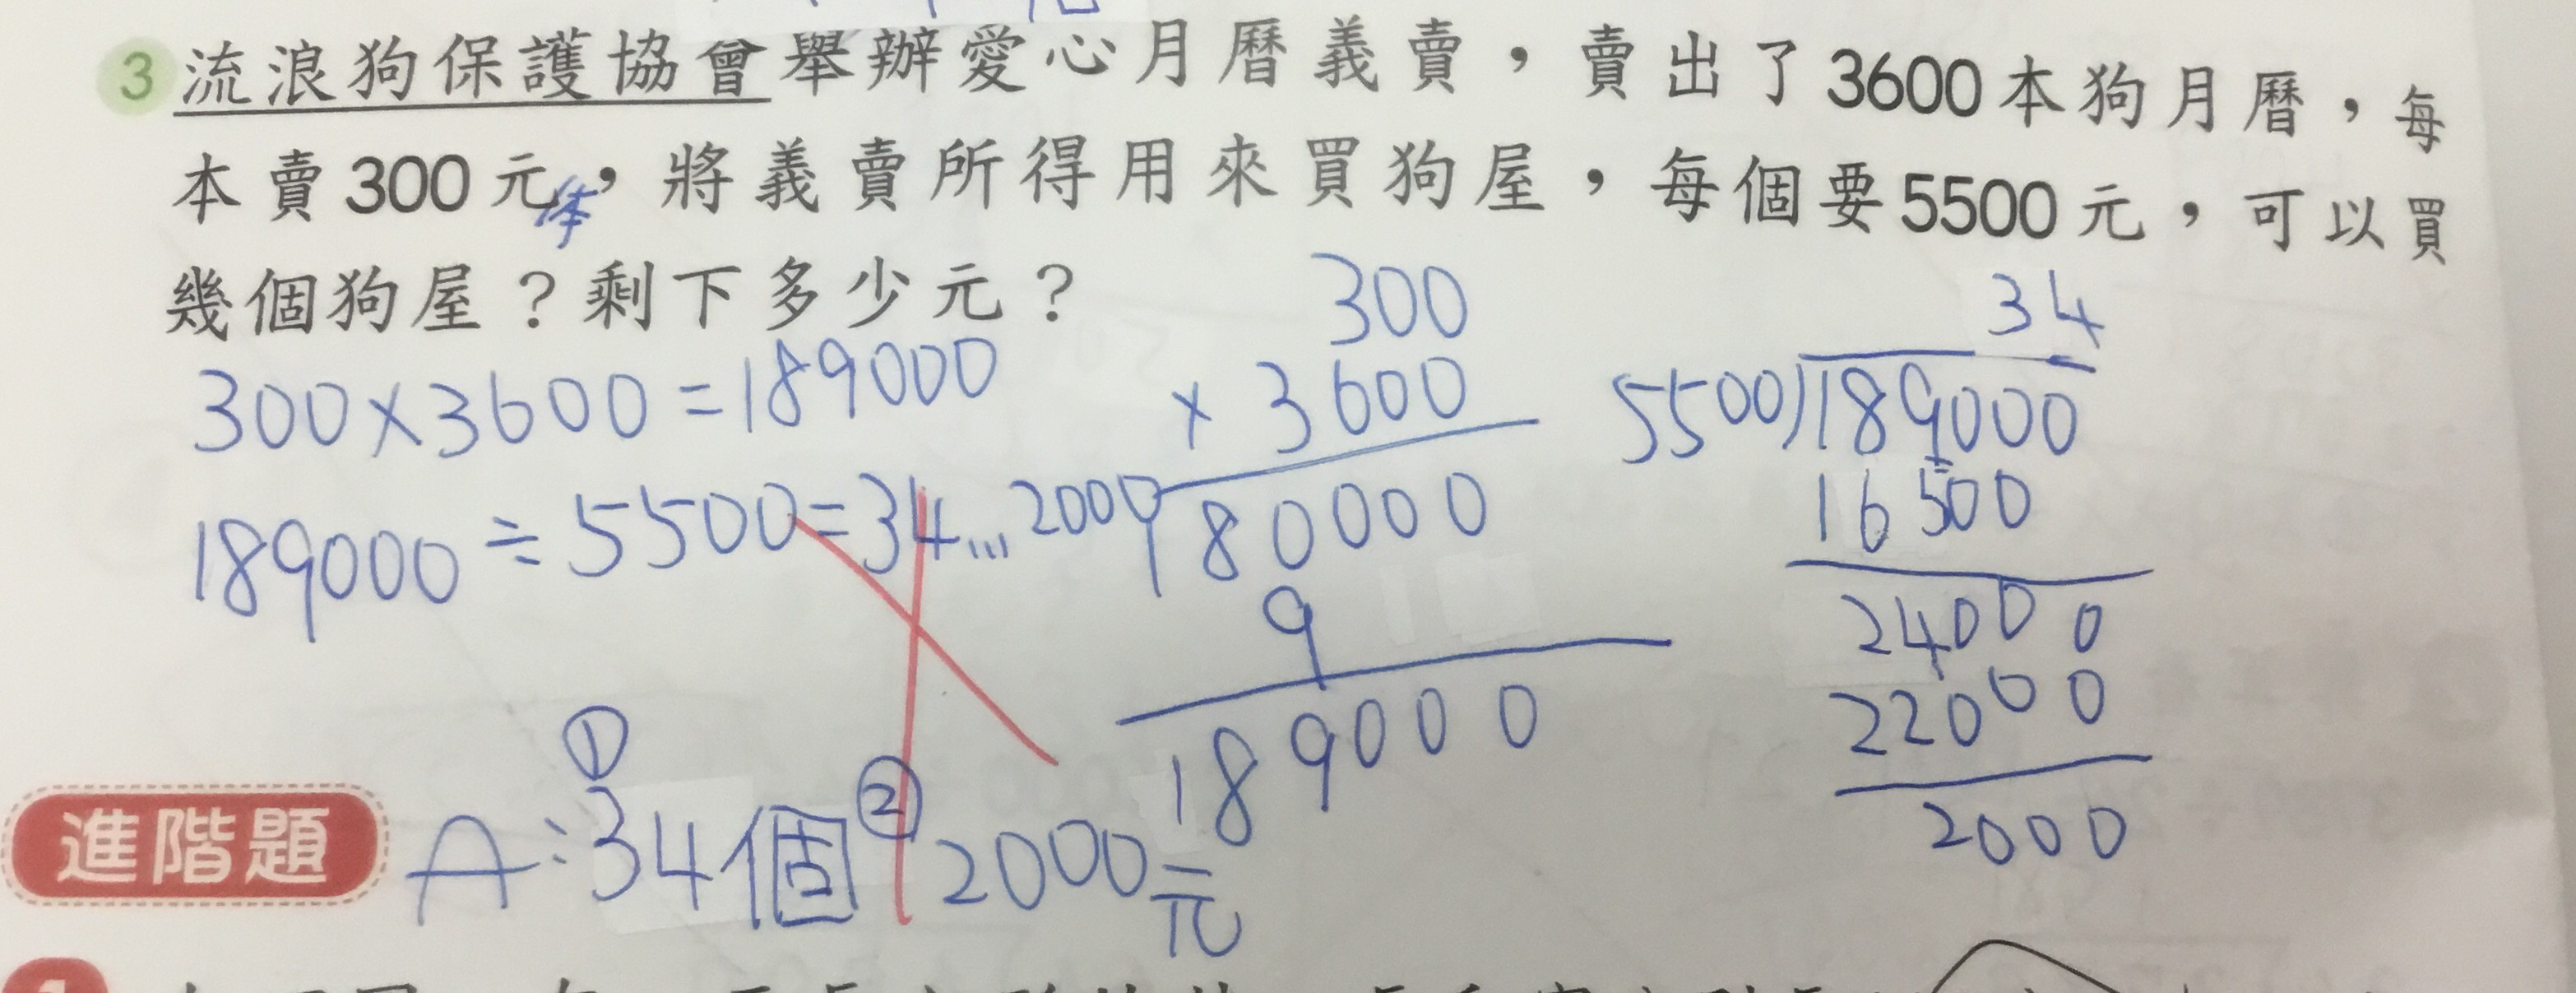 3 流浪狗保護協會舉辦愛心月曆義賣，賣出了3600本狗月曆，每
本賣300元，將義賣所得用來買狗屋，每個要5500元，可以買
本
幾個狗屋？剩下多少元？
300×3600=189000
189000÷5500=34…2000
300
×3600
180000
9
189000
34
5500)189000
16500
24000
22000
2000
進階題
A:①34個②2000元